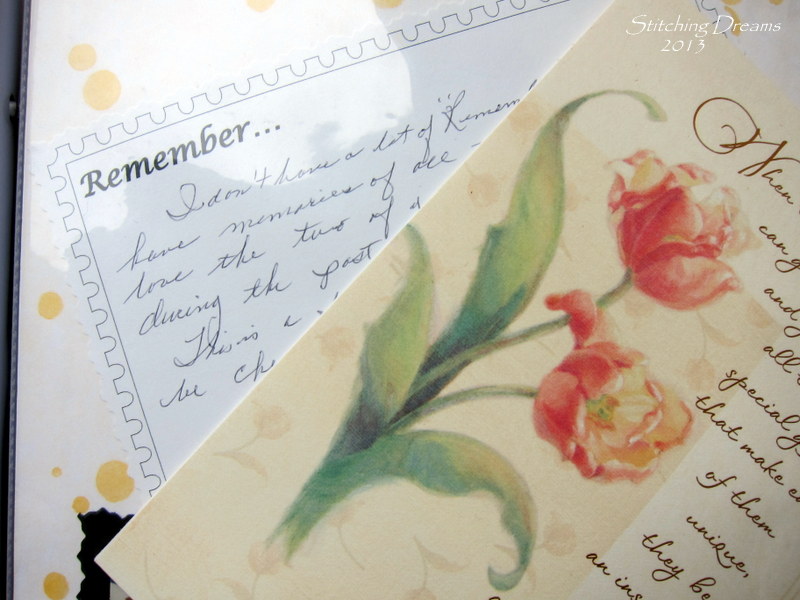 Stitching Dreams
2013
Remember...
I don't have a lot of "Remem
have memories of all
love the two of
during the past
This is a
be che
When
can g
and
all
special g
that make e
of them
unique,
they be
an ins